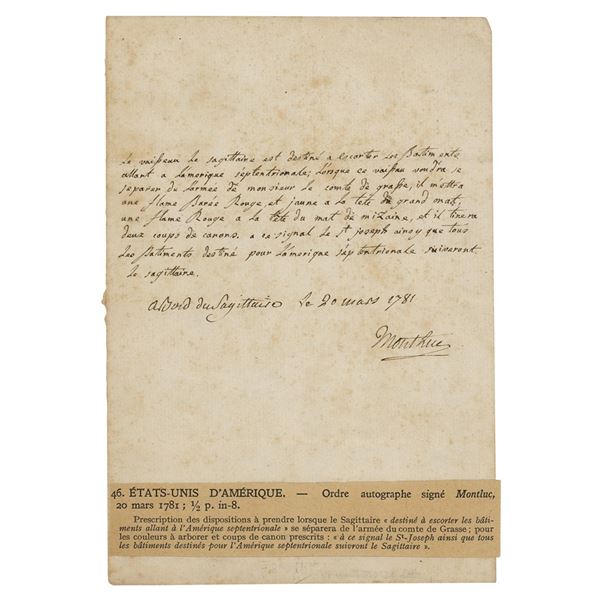 Le vaisseau Le sagittaire est destiné a escorter les Batimente
allant a L'amerique septentrionale; Lorsque ce vaisseau voudra se
separer de L'armée de monsieur Le comte de grasse, il mettra
une flame Barée Rouge, et jaune a La tete du grand mat,
une flame Rouge a La tete du mat de mizaine, et il tirera
deux coups de canons. a ce signal Le st joseph ainsy que tous
Les Batiments destiné pour L'amerique septentrionale suiveront
Le sagittaire.
a Bord du Sagittaire Le 20 mars 1781
Montluc
46. ÉTATS-UNIS D'AMÉRIQUE. — Ordre autographe signé Montluc,
20 mars 1781 ; ½ p. in-8.
Prescription des dispositions à prendre lorsque le Sagittaire « destiné à escorter les bâti-
ments allant à l'Amérique septentrionale » se séparera de l'armée du comte de Grasse ; pour
les couleurs à arborer et coups de canon prescrits : « à ce signal le St-Joseph ainsi que tous
les bâtiments destinés pour l'Amérique septentrionale suivront le Sagittaire ».